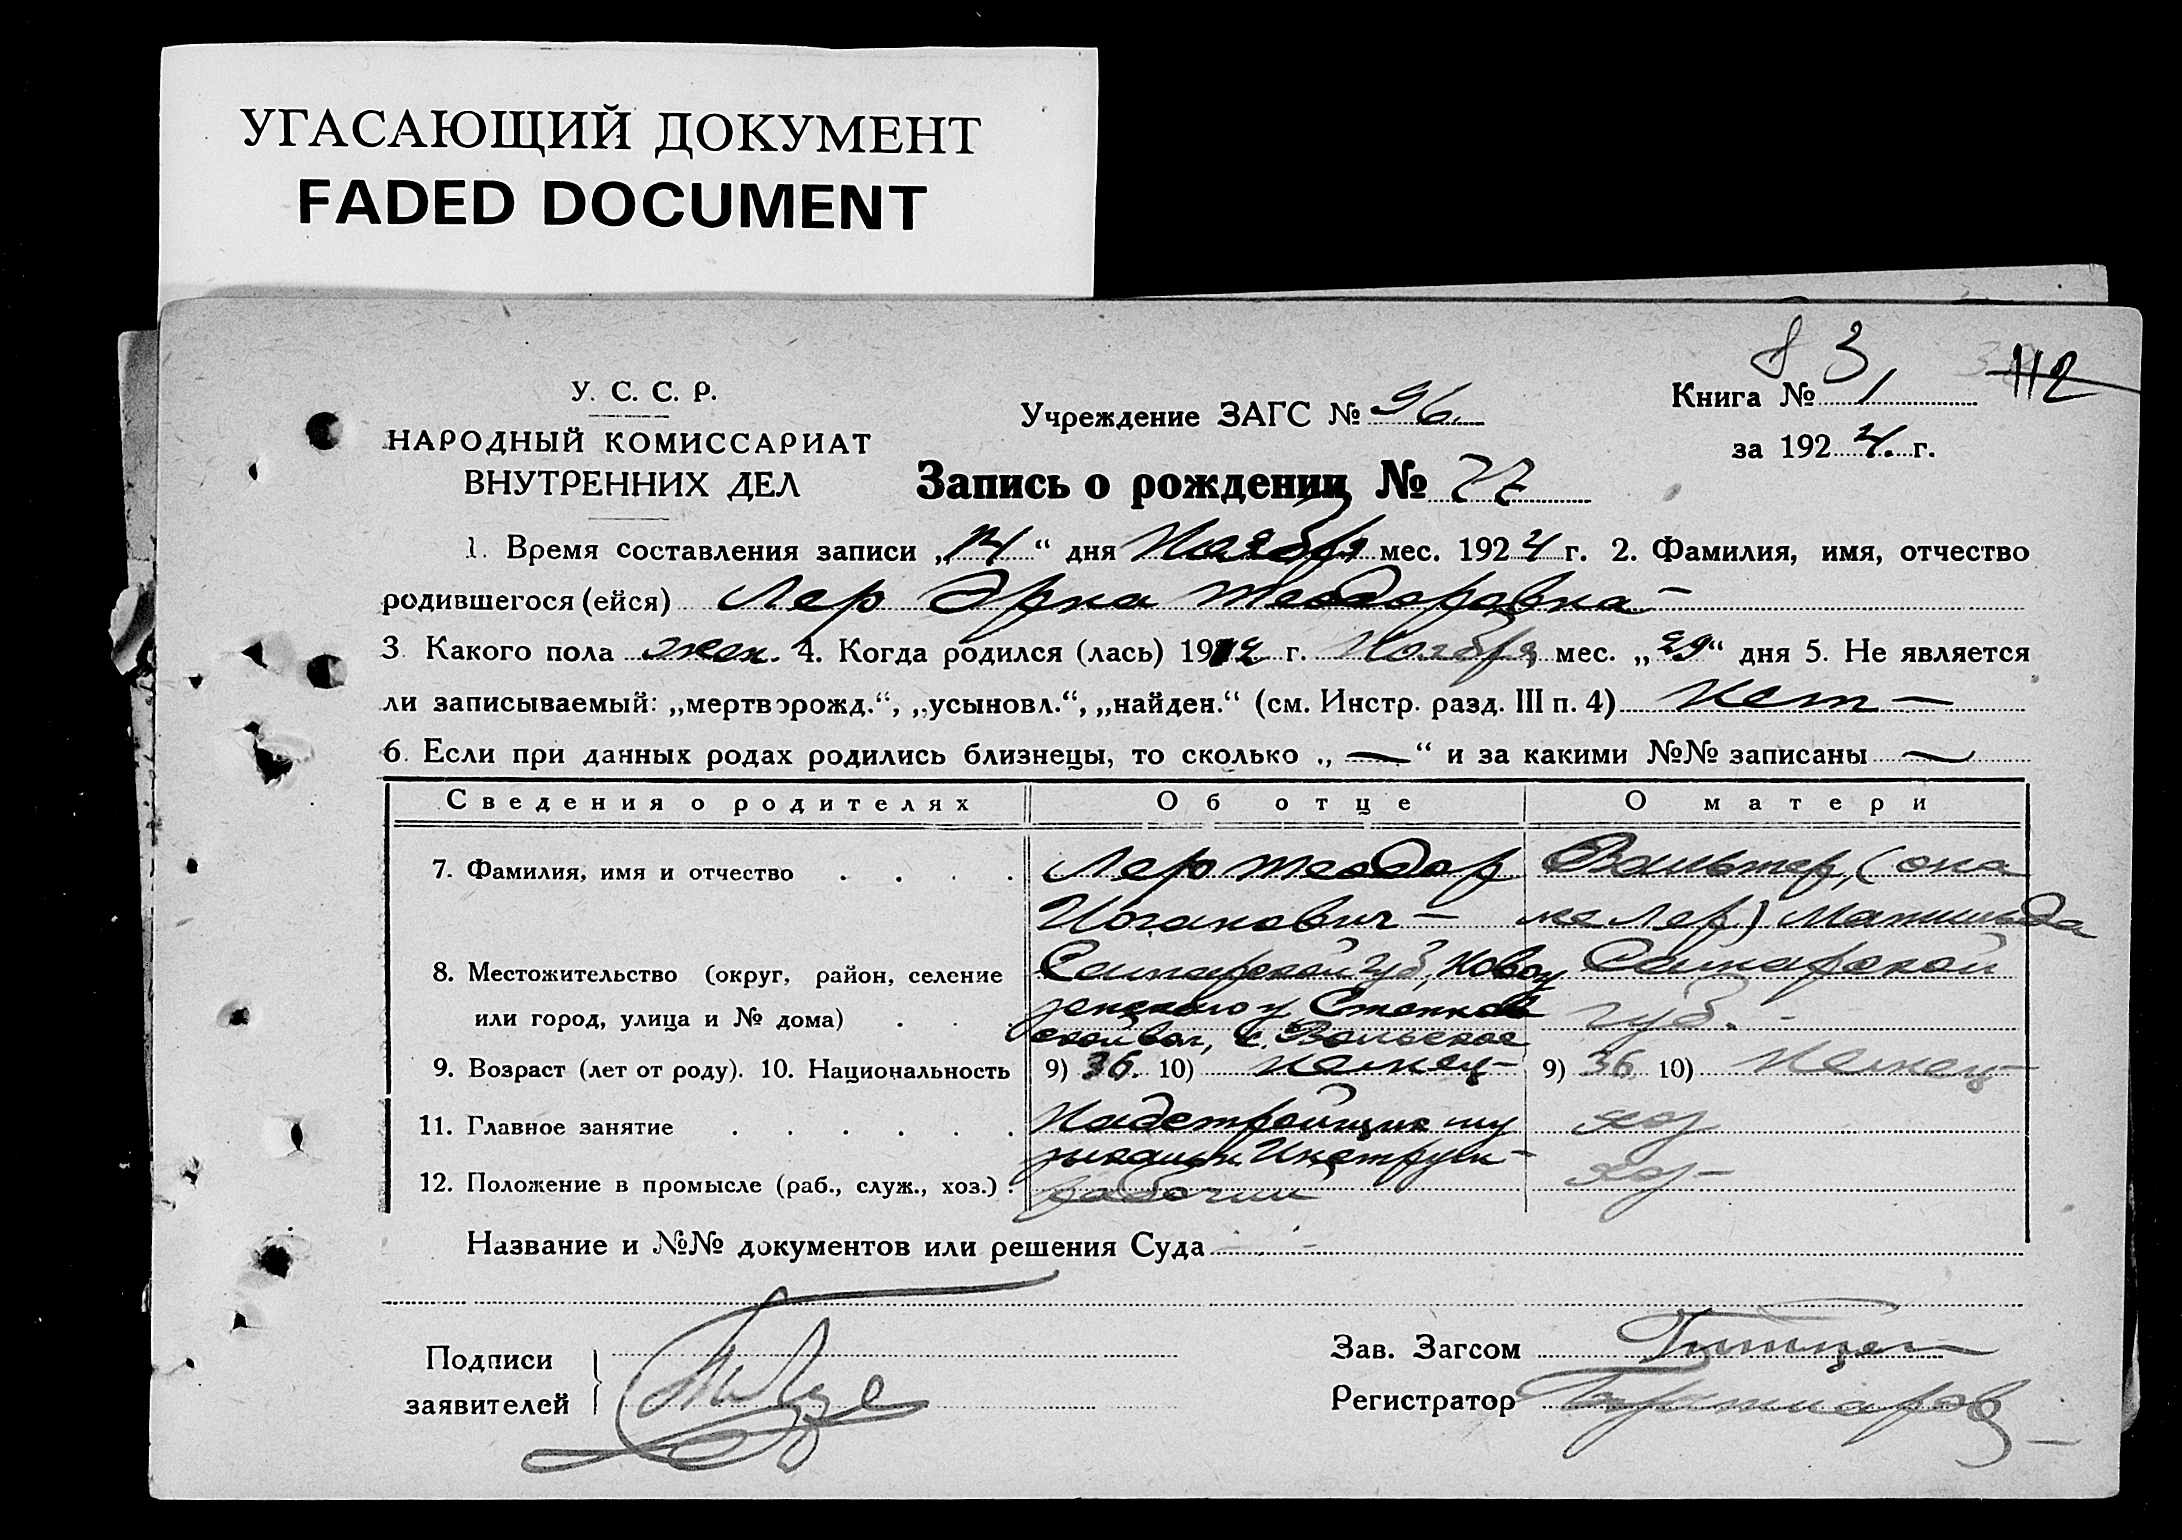 УГАСАЮЩИЙ ДОКУМЕНТ
FADED DOCUMENT
83
112
У. С. С. Р.
НАРОДНЫЙ КОМИССАРИАТ
ВНУТРЕННИХ ДЕЛ
Учреждение ЗАГС № 96
Книга № 1
за 1924. г.
Запись о рождении № 77
1. Время составления записи „14“ дня Ноября мес. 1924 г. 2. Фамилия, имя, отчество
родившегося (ейся) Лер Эрна Теодоровна —
3. Какого пола жен. 4. Когда родился (лась) 1912 г. Ноября мес. „29“ дня 5. Не является
ли записываемый: „мертворожд.“, „усыновл.“, „найден.“ (см. Инстр. разд. III п. 4) Нет —
6. Если при данных родах родились близнецы, то сколько „—“ и за какими №№ записаны —
Сведения о родителях Об отце О матери
7. Фамилия, имя и отчество . . . . Лер Теодор Вальтер, (она
Иоганович — же Лер) Матильда
8. Местожительство (округ, район, селение Самарской губ, Новоу Самарской
или город, улица и № дома) . . . зенского у Степнов губ. -
ской вол, с. Вольское
9. Возраст (лет от роду). 10. Национальность 9) 36. 10) немец — 9) 36 10) Немец —
11. Главное занятие . . . . . . му хоз
зыкальн. Инструм —
12. Положение в промысле (раб., служ., хоз.) . рабочий хоз —
Название и №№ документов или решения Суда — —
Подписи
заявителей
Зав. Загсом
Регистратор